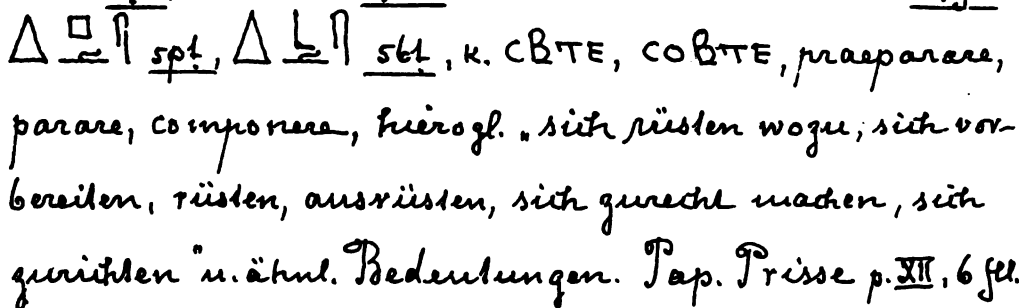 spt, sbt, k. ⲤⲂⲦⲈ, ⲤⲞⲂⲦⲈ, praeparare,
parare, componere, hierogl. „sich rüsten wozu, sich vor-
bereiten, rüsten, ausrüsten, sich zurecht machen, sich
zurichten" u. ähnl. Bedeutungen. Pap. Prisse p. XII, 6 fll.